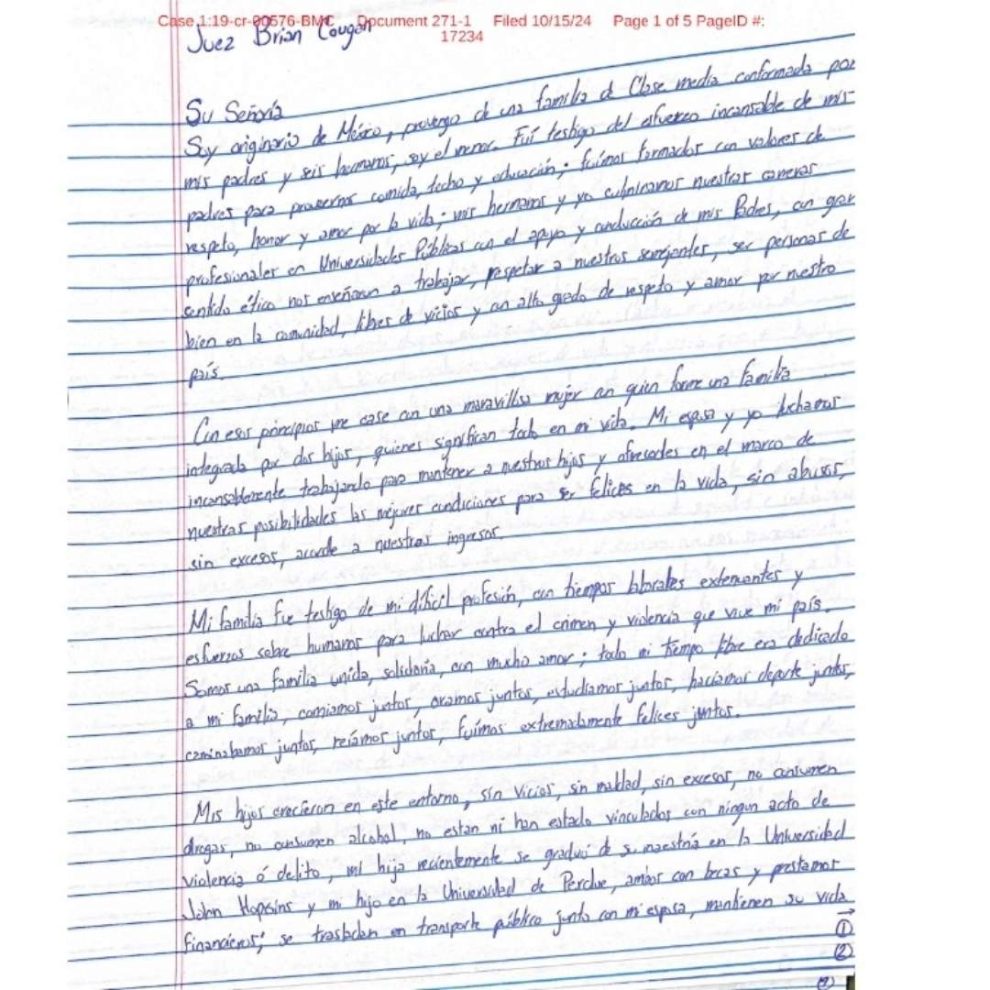 Case 1:19-cr-00576-BMC Document 271-1 Filed 10/15/24 Page 1 of 5 PageID #:
17234
Juez Brian Cougan
Su Señoría
Soy originario de México, provengo de una familia de Clase media conformada por
mis padres y seis hermanos, soy el menor. Fuí testigo del esfuerzo incansable de mis
padres para proveernos comida, techo y educación; fuímos formados con valores de
respeto, honor y amor por la vida; mis hermanos y yo culminamos nuestras carreras
profesionales en Universidades Públicas con el apoyo y conducción de mis Padres, con gran
sentido ético nos enseñaron a trabajar, respetar a nuestros semejantes, ser personas de
bien en la comunidad, libres de vicios y con alto grado de respeto y amor por nuestro
país.
Con esos principios me case con una maravillosa mujer con quien forme una familia
integrada por dos hijos, quienes significan todo en mi vida. Mi esposa y yo luchamos
incansablemente trabajando para mantener a nuestros hijos y ofrecerles en el marco de
nuestras posibilidades las mejores condiciones para ser felices en la vida, sin abusos,
sin excesos, acorde a nuestros ingresos.
Mi familia fue testigo de mi difícil profesión, con tiempos laborales extenuantes y
esfuerzos sobre humanos para luchar contra el crimen y violencia que vive mi país.
Somos una familia unida, solidaria, con mucho amor; todo mi tiempo libre era dedicado
a mi familia, comíamos juntos, oramos juntos, estudiamos juntos, hacíamos deporte juntos,
caminabamos juntos, reíamos juntos, fuímos extremadamente felices juntos.
Mis hijos crecieron en este entorno, sin vicios, sin maldad, sin excesos, no consumen
drogas, no consumen alcohol, no estan ni han estado vinculados con ningun acto de
violencia ó delito, mi hija recientemente se graduó de su maestría en la Universidad
John Hopkins y mi hijo en la Universidad de Perdue, ambos con becas y prestamos
financieros; se trasladan en transporte público junto con mi esposa, mantienen su vida
1
2